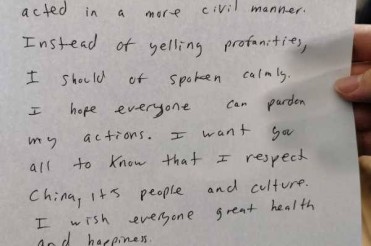 acted in a more civil manner.
Instead of yelling profanities,
I should of spoken calmly.
I hope everyone can pardon
my actions. I want you
all to know that I respect
China, its people and culture.
I wish everyone great health
and happiness.